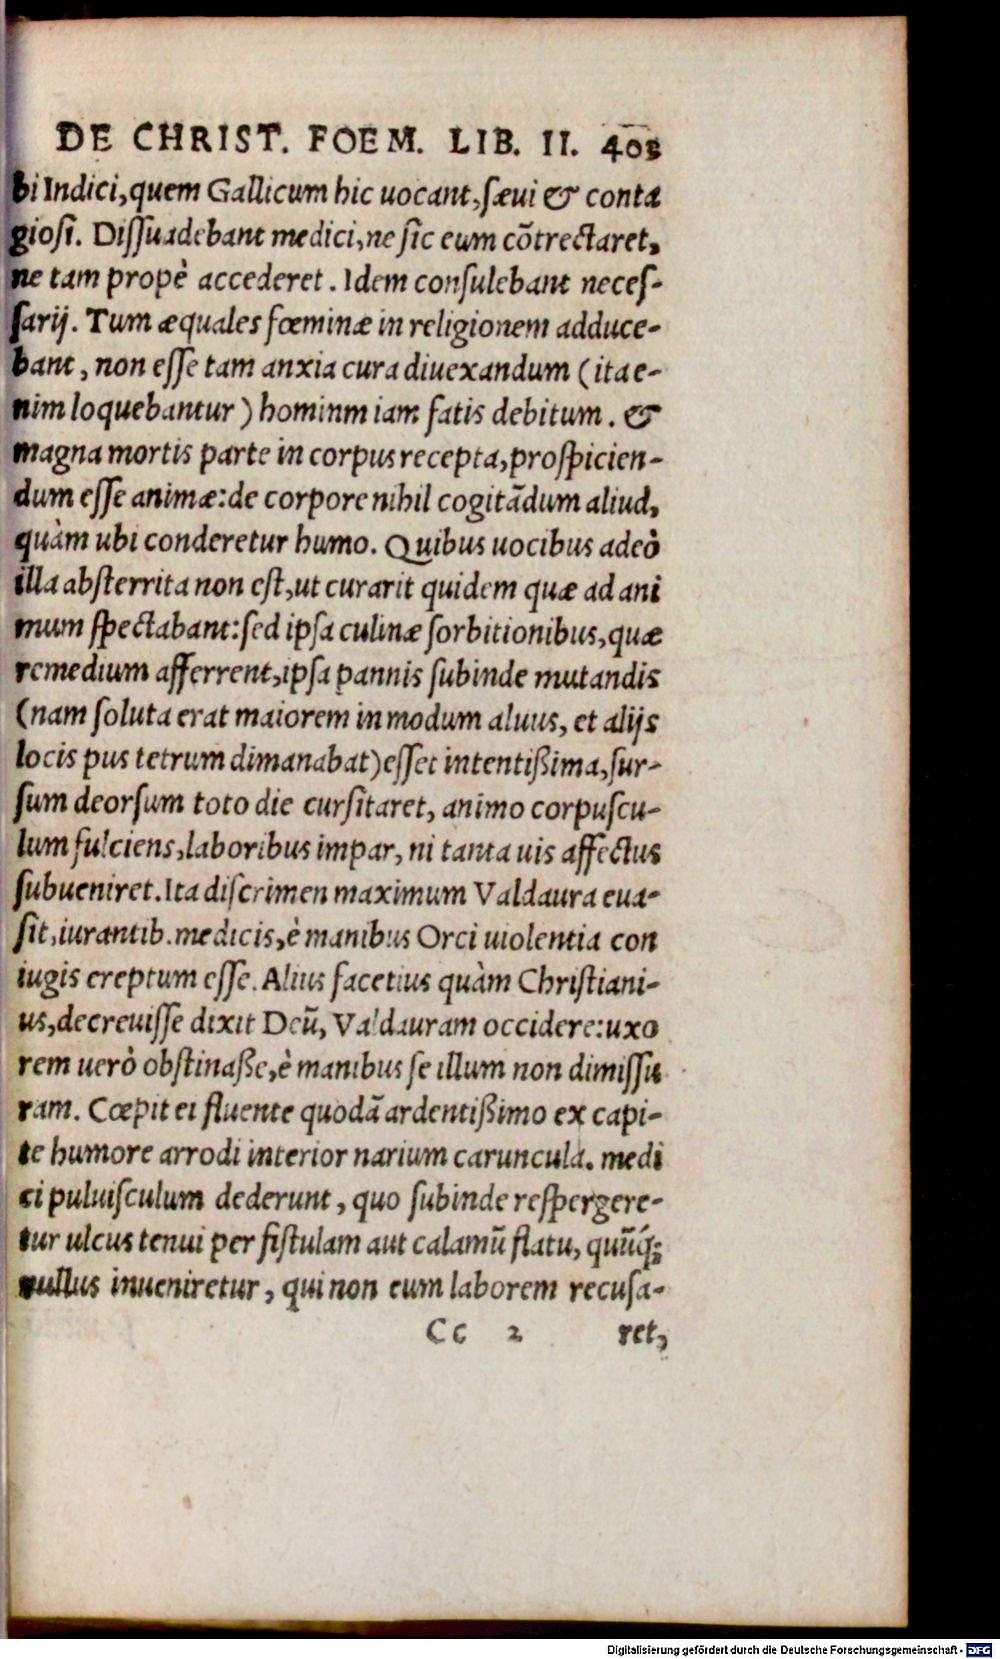 DE CHRIST. FOEM. LIB. II. 403
bi Indici, quem Gallicum hic uocant, sæui & conta
giosi. Dissuadebant medici, ne sic eum cõtrectaret,
ne tam propè accederet. Idem consulebant neces-
sarij. Tum æquales fœminæ in religionem adduce-
bant, non esse tam anxia cura diuexandum (ita e-
nim loquebantur) hominm iam fatis debitum. &
magna mortis parte in corpus recepta, prospicien-
dum esse animæ: de corpore nihil cogitãdum aliud,
quàm ubi conderetur humo. Quibus uocibus adeò
illa absterrita non est, ut curarit quidem quæ ad ani
mum spectabant: sed ipsa culinæ sorbitionibus, quæ
remedium afferrent, ipsa pannis subinde mutandis
(nam soluta erat maiorem in modum aluus, et alijs
locis pus tetrum dimanabat) esset intentißima, sur-
sum deorsum toto die cursitaret, animo corpuscu-
lum fulciens, laboribus impar, ni tanta uis affectus
subueniret. Ita discrimen maximum Valdaura eua-
sit, iurantib. medicis, è manibus Orci uiolentia con
iugis ereptum esse. Alius facetius quàm Christiani-
us, decreuisse dixit Deũ, Valdauram occidere: uxo
rem uerò obstinaße, è manibus se illum non dimissu
ram. Cœpit ei fluente quodã ardentißimo ex capi-
te humore arrodi interior narium caruncula. medi
ci puluisculum dederunt, quo subinde respergere-
tur ulcus tenui per fistulam aut calamũ flatu, quũq́;
nullus inueniretur, qui non eum laborem recusa-
Cc 2 ret,
Digitalisierung gefördert durch die Deutsche Forschungsgemeinschaft - DFG